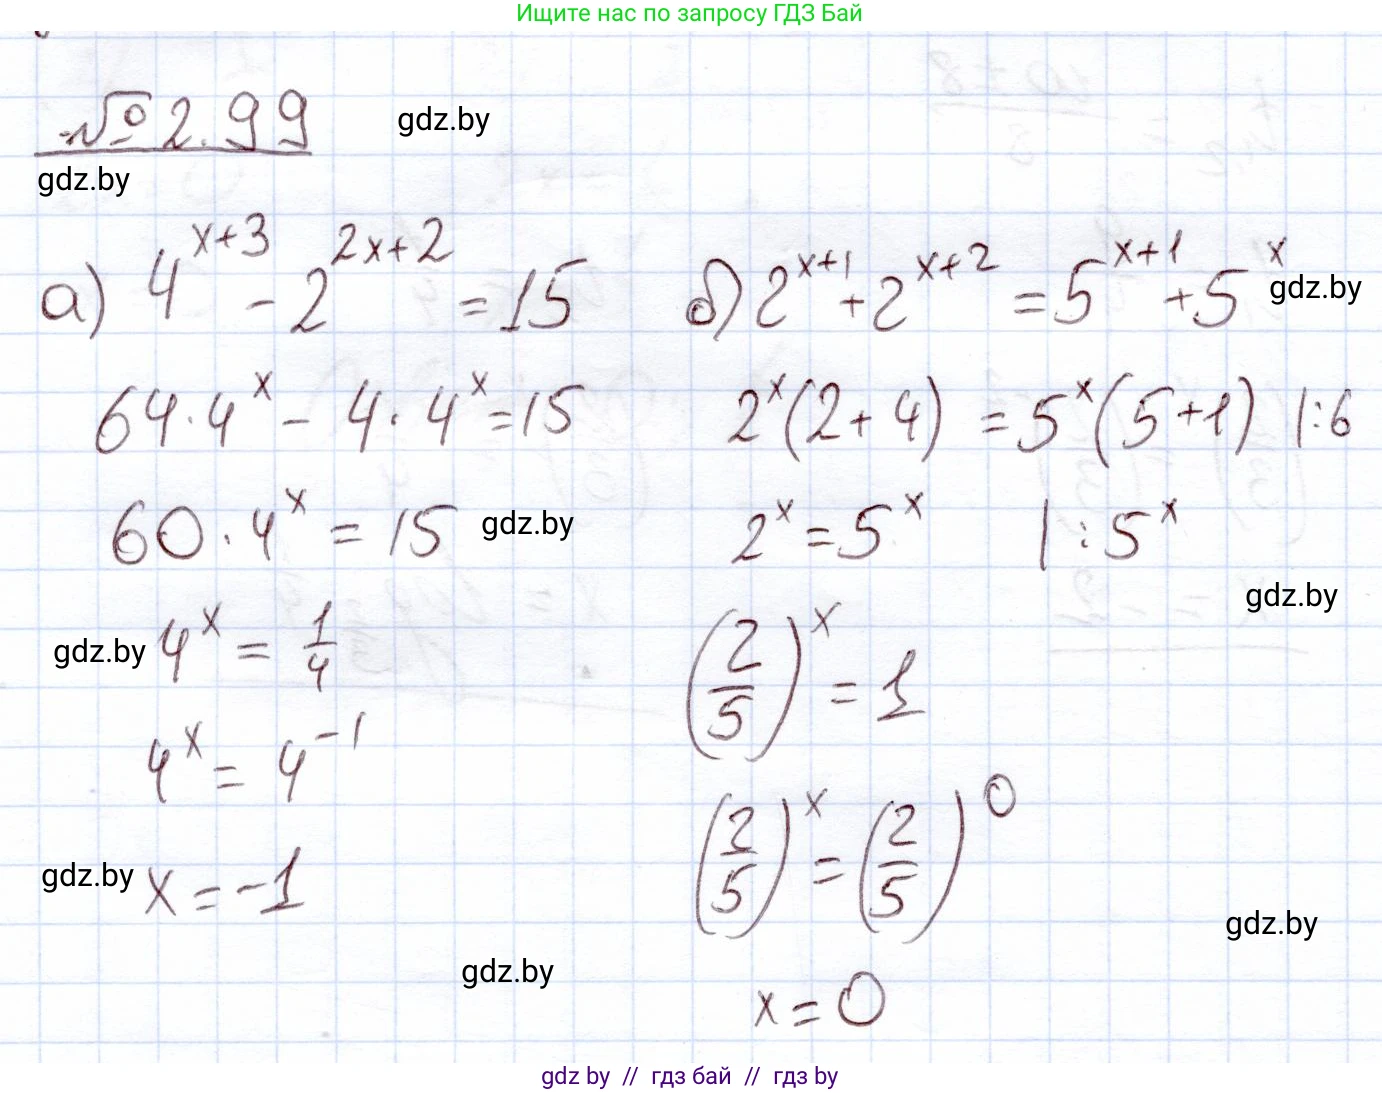 Ищите нас по запросу ГДЗ Бай
№ 2.99
gdz.by
gdz.by
а) 4^{x+3} - 2^{2x+2} = 15
64 · 4^x - 4 · 4^x = 15
60 · 4^x = 15
gdz.by
4^x = 1/4
gdz.by
4^x = 4^{-1}
x = -1
gdz.by
gdz.by
б) 2^{x+1} + 2^{x+2} = 5^{x+1} + 5^x
gdz.by
2^x (2 + 4) = 5^x (5 + 1) | : 6
2^x = 5^x | : 5^x
gdz.by
(2/5)^x = 1
(2/5)^x = (2/5)^0
gdz.by
x = 0
gdz by // гдз бай // гдз by